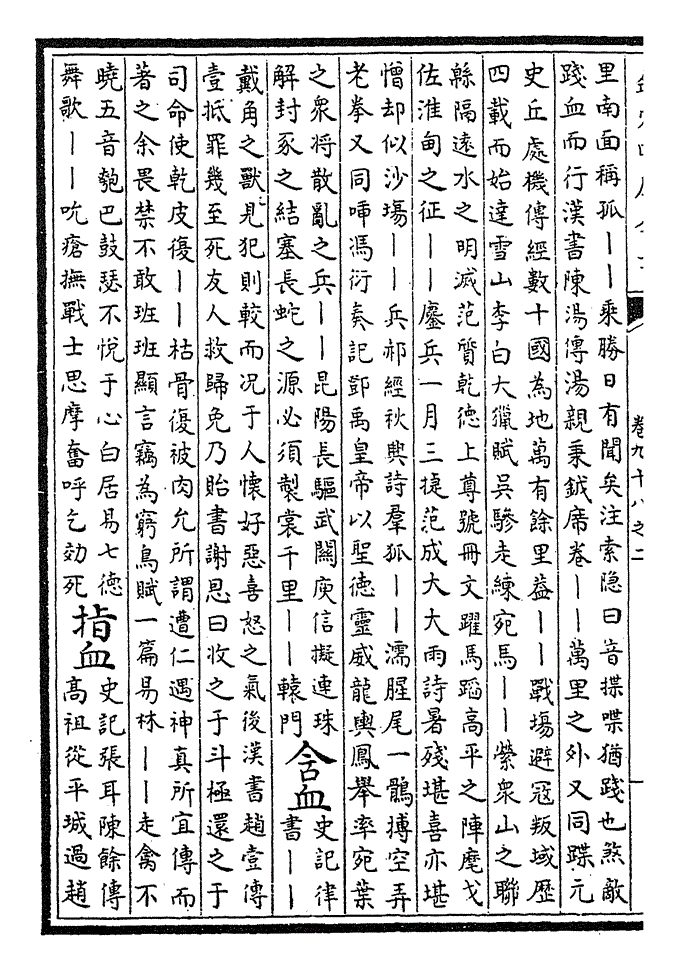 卷九十八之二
里南面稱孤——乘勝日有聞矣注索隐曰音揲喋猶踐也煞敵
踐血而行漢書陳湯傳湯親秉鉞席卷——萬里之外又同蹀元
史丘處機傳經數十國為地萬有餘里葢——戰場避冦叛域歴
四載而始達雪山李白大獵賦吳驂走練宛馬——縈衆山之聯
緜隔逺水之明滅范質乾德上尊號冊文躍馬蹈高平之陣麾戈
佐淮甸之征——鏖兵一月三捷范成大大雨詩暑殘堪喜亦堪
憎却似沙場——兵郝經秋興詩羣狐——濡腥尾一鶻搏空弄
老拳又同啑馮衍奏記鄧禹皇帝以聖徳靈威龍輿鳳舉率宛葉
之衆将散亂之兵——昆陽長驅武闗庾信擬連珠
解封豕之結塞長蛇之源必須製裳千里——轅門
含血
史記律
書——
戴角之獸見犯則較而况于人懐好惡喜怒之氣後漢書趙壹傳
壹抵罪幾至死友人救歸免乃貽書謝恩曰收之于斗極還之于
司命使乾皮復——枯骨復被肉允所謂遭仁遇神真所宜傳而
著之余畏禁不敢班班顯言竊為窮鳥賦一篇易林——走禽不
曉五音瓠巴鼓瑟不悅于心白居易七德
舞歌——吮瘡撫戰士思摩奮呼乞効死
指血
史記張耳陳餘傳
高祖從平城過趙